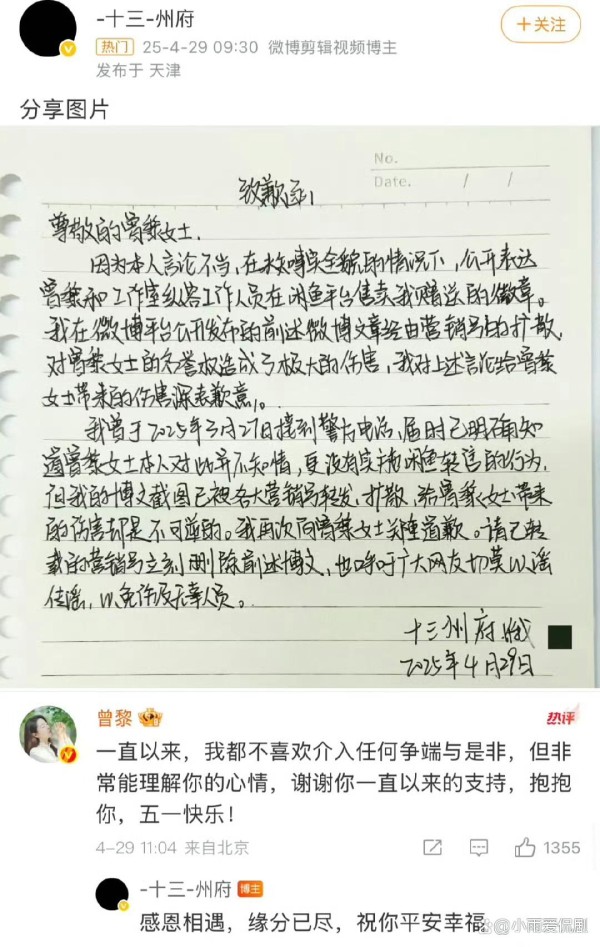 -十三-州府
+关注
热门 25-4-29 09:30 微博剪辑视频博主
发布于 天津
分享图片
No.
Date. / /
致歉函
尊敬的曾黎女士,
因为本人言论不当,在未知事实全貌的情况下,公开表达
曾黎和工作室纵容工作人员在闲鱼平台售卖我赠送的徽章。
我在微博平台公开发布的前述微博文章经由营销号的扩散,
对曾黎女士的名誉权造成了极大的伤害,我对上述言论给曾黎
女士带来的伤害深表歉意。
我曾于2025年3月27日接到警方电话,届时已明确知
道曾黎女士本人对此并不知情,更没有实施闲鱼转售的行为,
但我的博文截图已被各大营销号转发、扩散,给曾黎女士带来
的伤害却是不可逆的。我再次向曾黎女士郑重道歉。请已转
载的营销号立刻删除前述博文,也呼吁广大网友切莫以谣
传谣,以免伤及无辜人员。
十三州府
2025年4月29日
曾黎
热评
一直以来,我都不喜欢介入任何争端与是非,但非
常能理解你的心情,谢谢你一直以来的支持,抱抱
你,五一快乐!
4-29 11:04 来自北京
1355
-十三-州府 博主
感恩相遇,缘分已尽,祝你平安幸福
@小雨爱侃剧